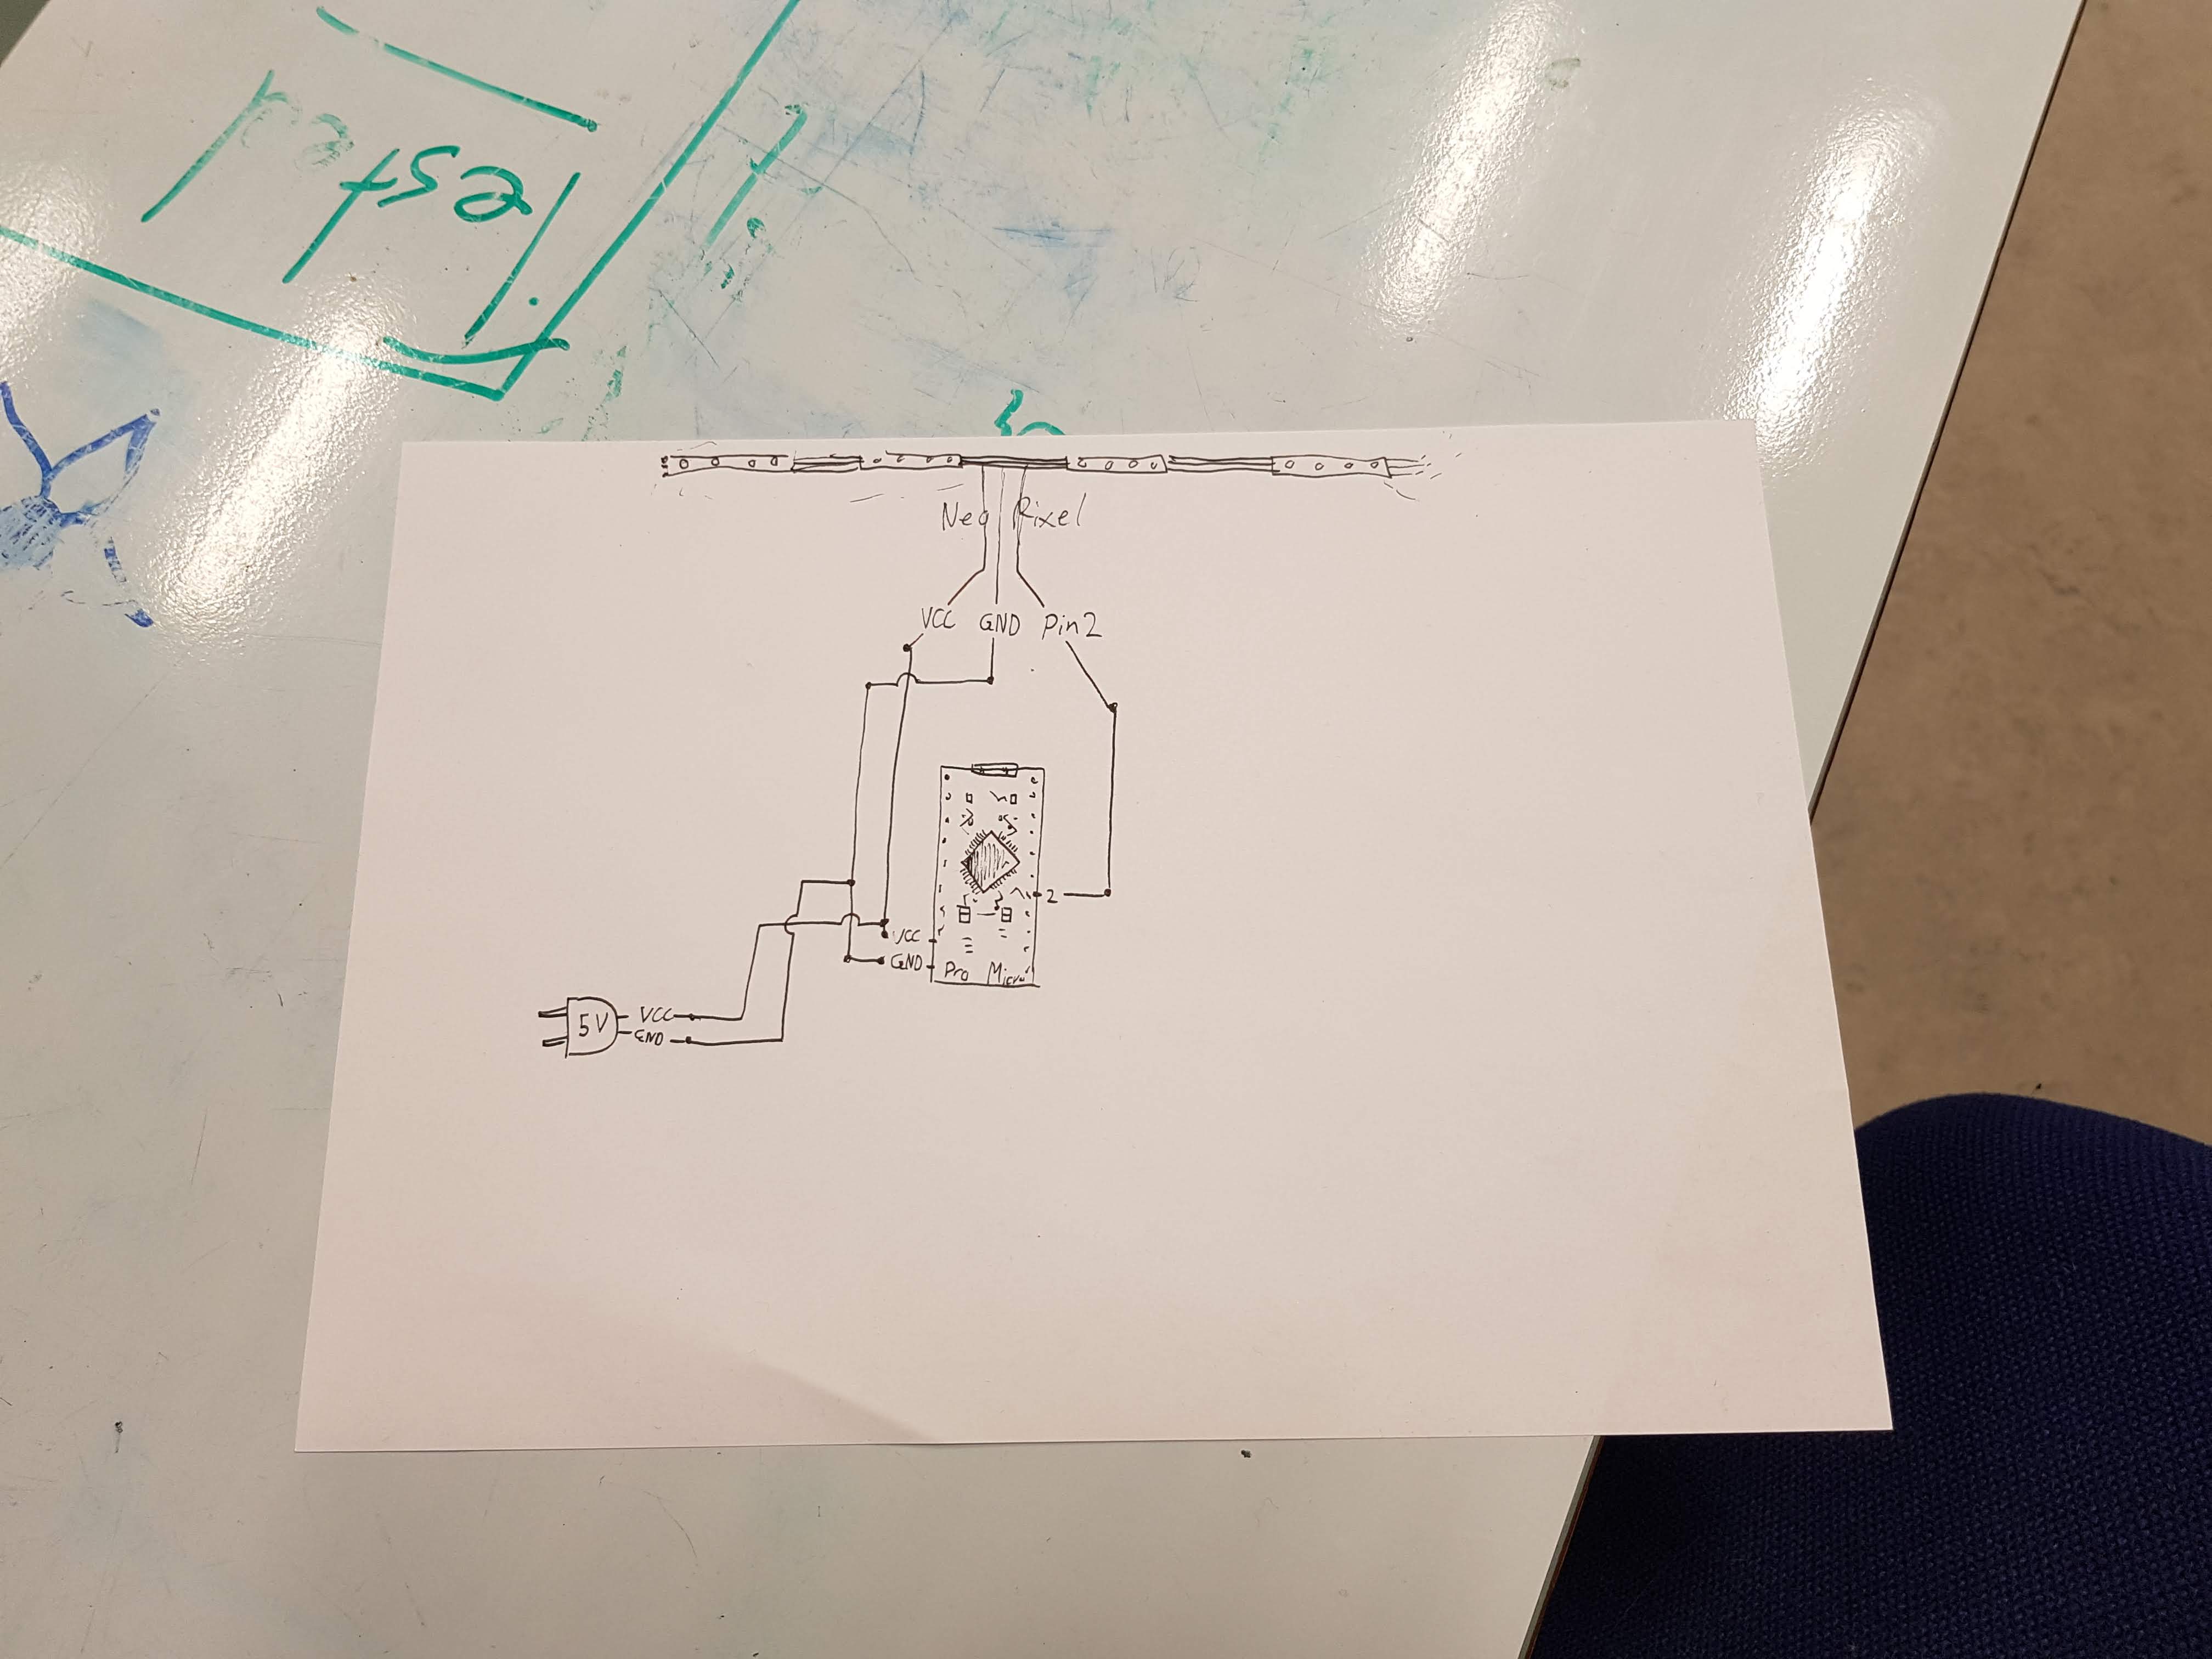 Neo Pixel
VCC GND Pin2
2
VCC
GND
Pro Micro
5V
VCC
GND